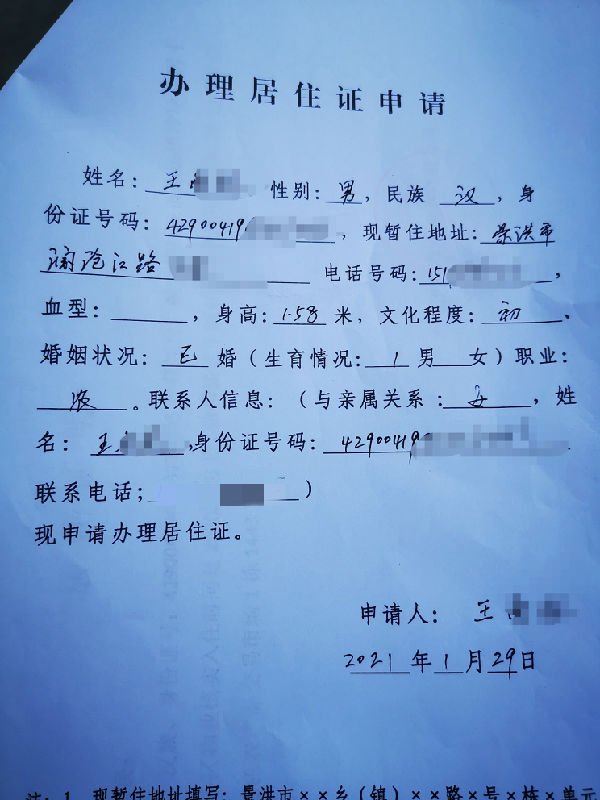 办理居住证申请
姓名：王 性别：男，民族 汉，身
份证号码：42900419 ，现暂住地址：景洪市
澜沧江路 电话号码：151 ，
血型： ，身高：1.58 米，文化程度：初，
婚姻状况：已婚（生育情况：1男 女）职业：
农。联系人信息：（与亲属关系： ，姓
名：王 ,身份证号码：42900419
联系电话； ）
现申请办理居住证。
申请人：王
2021年1月29日
注：1、现暂住地址填写：景洪市××乡（镇）××路×号×栋×单元